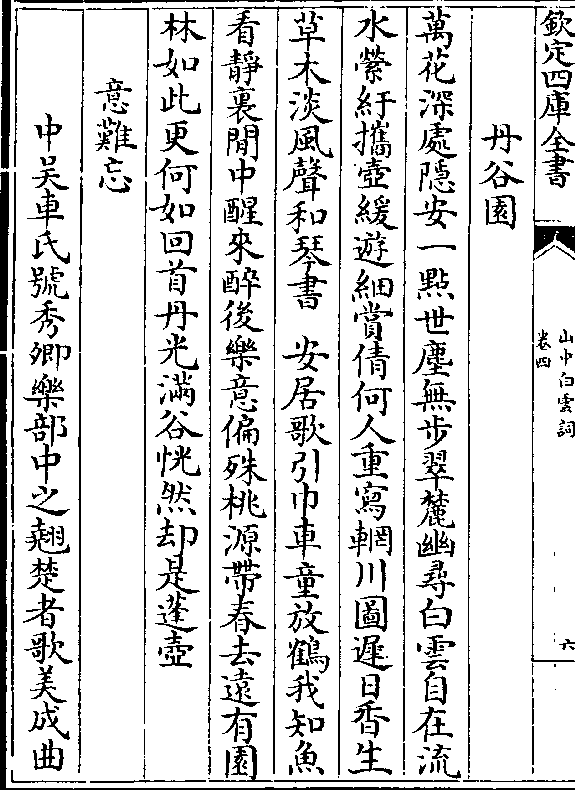 欽定四庫全書
山中白雲詞
卷四
六
丹谷園
萬花深處隱安一點世塵無步翠麓幽尋白雲自在流
水縈紆攜壺緩遊細賞倩何人重寫輞川圖遲日香生
草木淡風聲和琴書　安居歌引巾車童放鶴我知魚
看靜裏閒中醒來醉後樂意偏殊桃源帶春去遠有園
林如此更何如回首丹光滿谷恍然却是蓬壺
意難忘
中吳車氏號秀卿樂部中之翹楚者歌美成曲